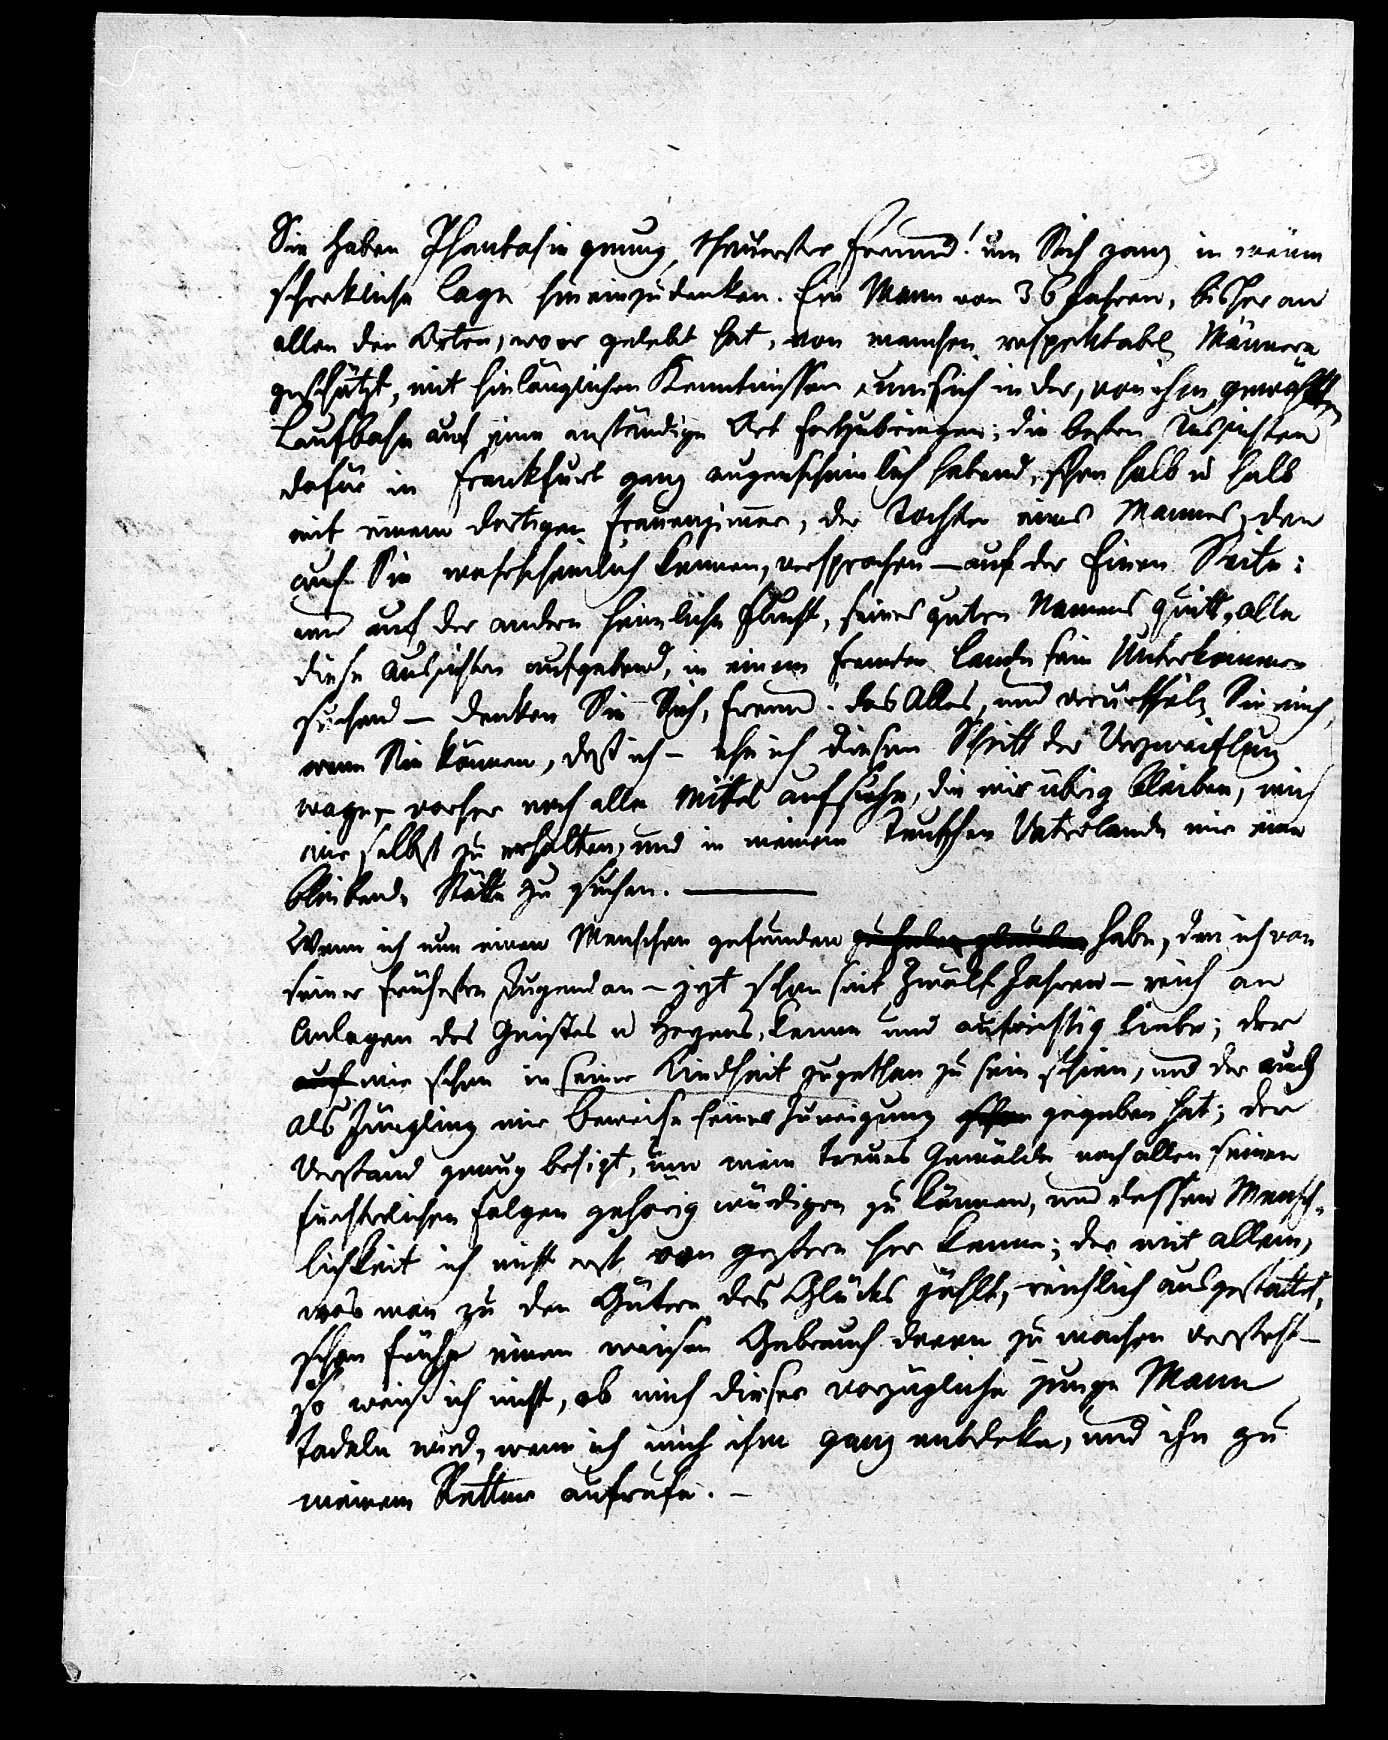 Sie haben Phantasie genug, theuerster Freund! um Sich ganz in meine
schrekliche Lage hineinzudenken. Ein Mann von 36 Jahren, bisher an
allen den Orten, wo er gelebt hat, von manchen respektabeln Männern
geschätzt, mit hinlänglichen Kenntnissen um sich in der, von ihm gewählten
Laufbahn auf eine anständige Art fortzubringen; die besten Aussichten
dafür in Frankfurt ganz augenscheinlich habend, schon halb u halb
mit einem dortigen Frauenzimmer, der Tochter eines Mannes, den
auch Sie wahrscheinlich kennen, versprochen — auf der Einen Seite:
und auf der andern heimliche Flucht, seines guten Namens quitt, alle
diese Aussichten aufgebend, in einem fremden Lande sein Unterkommen
suchend — denken Sie Sich, Freund! das Alles, und verurtheilen Sie mich,
wenn Sie können, daß ich — ehe ich diesen Schritt der Verzweiflung
wage, — vorher noch alle Mittel aufsuche, die mir übrig bleiben, mich
mir selbst zu erhalten, und in meinem Teutschen Vaterlande mir eine
bleibende Stätte zu suchen. —
Wenn ich nun einen Menschen gefunden zu haben glaube habe, den ich von
seiner frühesten Jugend an — jezt schon seit Zwölf Jahren — reich an
Anlagen des Geistes u Herzens, kenne und aufrichtig liebe; der
auch mir schon in seiner Kindheit zugethan zu sein schien, und der auch
als Jüngling mir Beweise seiner Zuneigung schon gegeben hat; der
Verstand genug besizt, um mein treues Gemälde nach allen seinen
fürchterlichen Folgen gehörig würdigen zu können, und dessen Mensch-
lichkeit ich nicht erst von gestern her kenne; der mit allem,
was man zu den Gütern des Glücks zählt, reichlich ausgestattet,
schon frühe einen weisen Gebrauch davon zu machen versteht —
so weiß ich nicht, ob mich dieser vorzügliche junge Mann
tadeln wird, wenn ich mich ihm ganz entdeke, und ihn zu
meinem Retter aufrufe. —